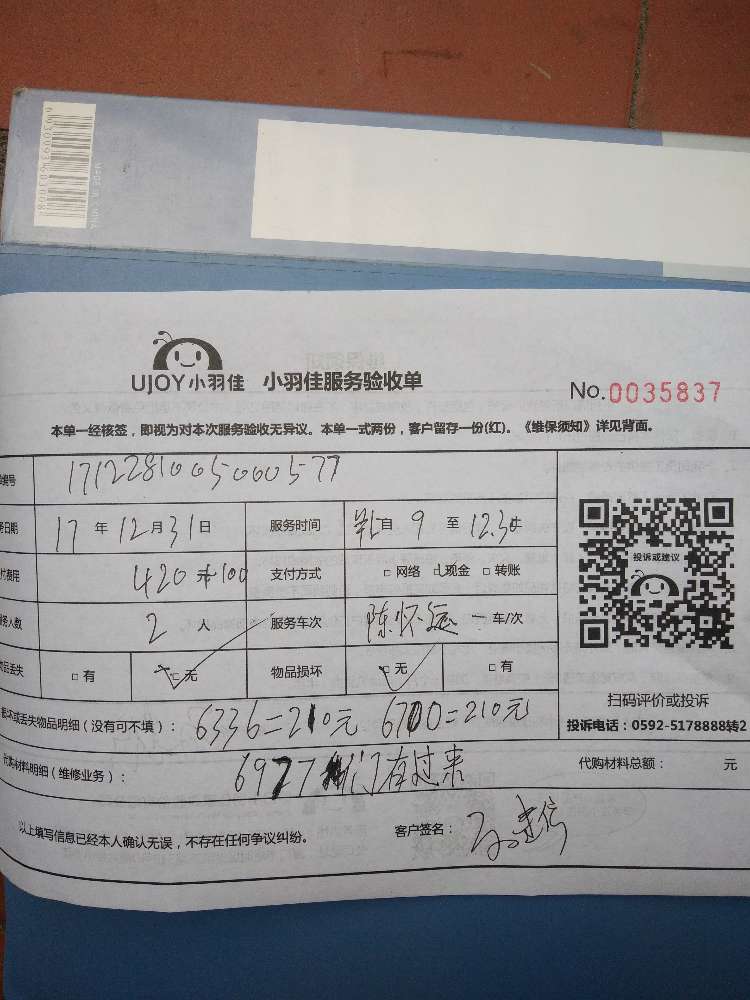 MADE IN CHINA
UJOY小羽佳 小羽佳服务验收单
No.0035837
本单一经核签，即视为对本次服务验收无异议。本单一式两份，客户留存一份(红)。《维保须知》详见背面。
编号 1712281005000577
日期 17 年 12 月 31 日 服务时间 自 9 至 12.30
付费用 420 +100 支付方式 □ 网络 □ 现金 □ 转账
务人数 2 人 服务车次 陈怀远 车/次
物品丢失 □ 有 □ 无 物品损坏 □ 无 □ 有
损坏或丢失物品明细（没有可不填）： 6336=210元 6700=210元
代购材料明细（维修业务）： 6927 们有过来
代购材料总额： 元
以上填写信息已经本人确认无误，不存在任何争议纠纷。 客户签名：
投诉或建议
扫码评价或投诉
投诉电话：0592-5178888转2